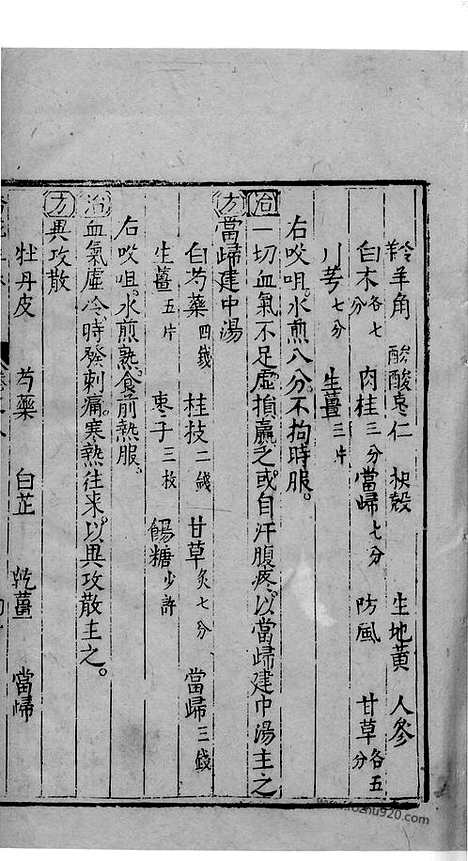 羚羊角　酸酸枣仁　枳殼　生地黃　人參
白木各七分　肉桂三分　當歸七分　防風　甘草各五分
川芎七分　生薑三片
右㕮咀。水煎八分。不拘時服。
治一切血氣不足。虛損羸乏。或自汗腹疼。以當歸建中湯主之
方當歸建中湯
白芍藥四錢　桂枝二錢　甘草炙七分　當歸三錢
生薑五片　枣子三枚　餳糖少許
右㕮咀。水煎熟。食前熱服。
治血氣虛冷。時發刺痛。寒熱往來。以異攻散主之。
方異攻散
牡丹皮　芍藥　白芷　乾薑　當歸